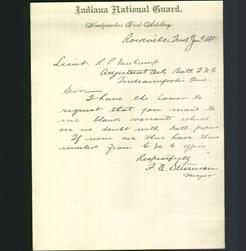 Indiana National Guard.
Headquarters First Artillery.
Rockville, Ind
Lieut. R. P. Van Camp
Adjutant Arty Batt I N G
Indianapolis Ind.
Sir:
I have the honor to
request that you mail to
me blank warrants which
are no doubt with Batt. papers
If none are there have them
mailed from Office
Respectfully
F. E. Stevenson
Major